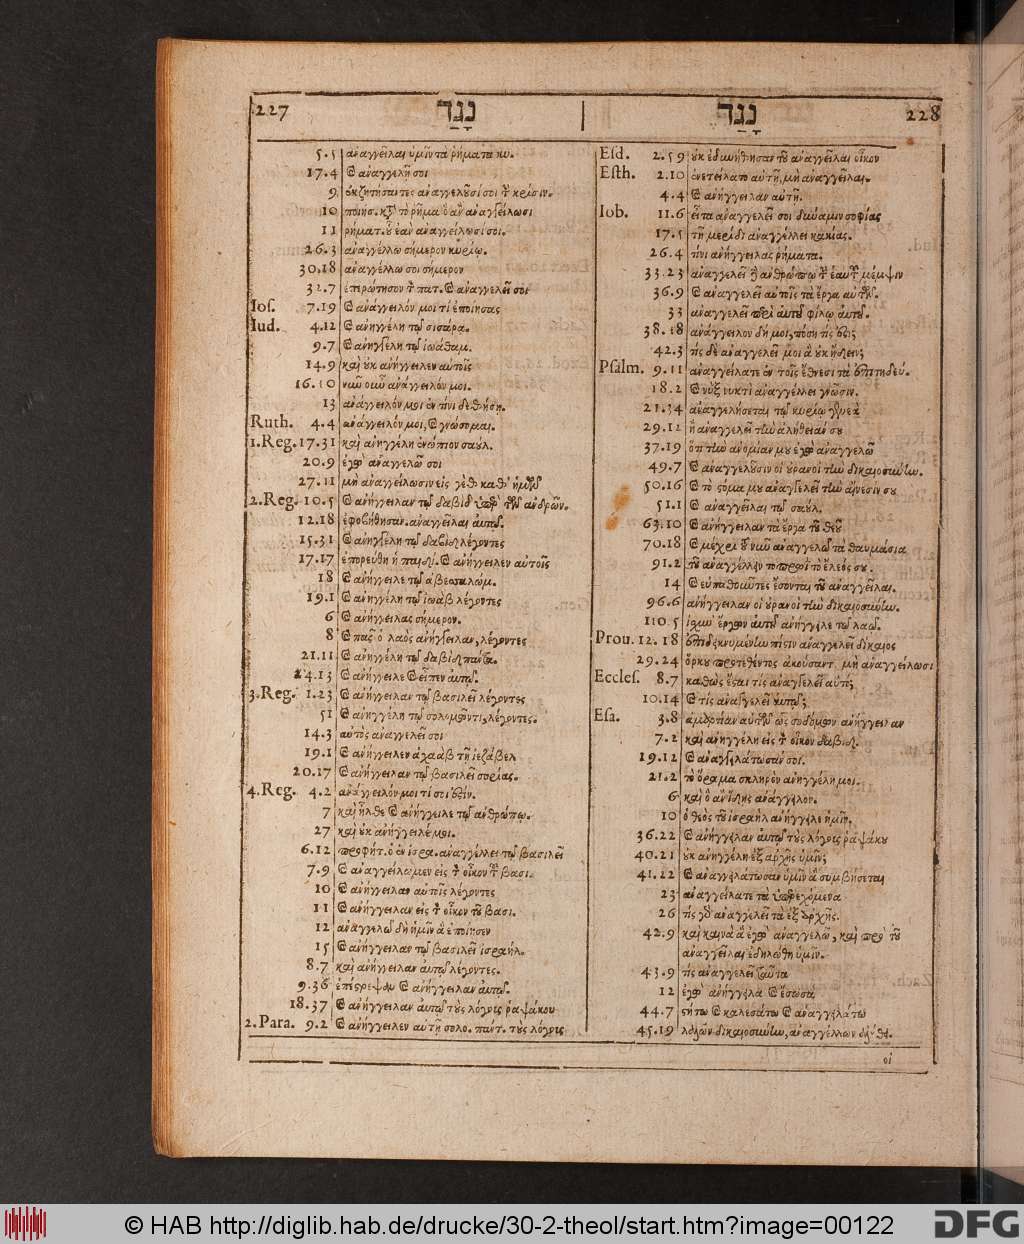 227 נָגַד
5.5 ἀναγγεῖλαι ὑμῖν τὰ ῥήματα κυ.
17.4 καὶ ἀναγγελῇ σοι
9 ἐκζητήσαντες ἀναγγελοῦσί σοι τὴν κρίσιν.
10 ποιήσ. κατὰ τὸ ῥῆμα ὃ ἂν ἀναγγείλωσι
11 ῥήματ. οὗ ἐὰν ἀναγγείλωσί σοι.
26.3 ἀναγγέλλω σήμερον κυρίῳ.
30.18 ἀναγγέλλω σοι σήμερον
32.7 ἐπερώτησον τὸν πατ. καὶ ἀναγγελεῖ σοι
Ios. 7.19 καὶ ἀνάγγειλόν μοι τί ἐποίησας
Iud. 4.12 καὶ ἀνηγγέλη τῷ σισάρα.
9.7 καὶ ἀνηγγέλη τῷ ἰωάθαμ.
14.9 καὶ οὐκ ἀνήγγειλεν αὐτοῖς
16.10 νῦν οὖν ἀνάγγειλόν μοι.
13 ἀνάγγειλόν μοι ἐν τίνι δεθήσῃ.
Ruth. 4.4 ἀνάγγειλόν μοι, καὶ γνώσομαι.
1.Reg. 17.31 καὶ ἀνηγγέλη ἐνώπιον σαούλ.
20.9 ἐγὼ ἀναγγελῶ σοι
27.11 μὴ ἀναγγείλωσιν εἰς γὲθ καθ' ἡμῶν
2.Reg. 10.5 καὶ ἀνήγγειλαν τῷ δαβὶδ ὑπὲρ τῶν ἀνδρῶν.
12.18 ἐφοβήθησαν ἀναγγεῖλαι αὐτῷ.
15.31 καὶ ἀνηγγέλη τῷ δαβὶδ λέγοντες
17.17 ἐπορεύθη ἡ παιδί. καὶ ἀνήγγειλεν αὐτοῖς
18 καὶ ἀνήγγειλε τῷ ἀβεσσαλώμ.
19.1 καὶ ἀνηγγέλη τῷ ἰωὰβ λέγοντες
6 καὶ ἀνήγγειλας σήμερον.
8 καὶ πᾶς ὁ λαὸς ἀνήγγειλαν, λέγοντες
21.11 καὶ ἀνηγγέλη τῷ δαβὶδ πάντα.
24.13 καὶ ἀνήγγειλε καὶ εἶπεν αὐτῷ.
3.Reg. 1.23 καὶ ἀνήγγειλαν τῷ βασιλεῖ λέγοντες
51 καὶ ἀνηγγέλη τῷ σολομῶντι, λέγοντες.
14.3 αὐτὸς ἀναγγελεῖ σοι
19.1 καὶ ἀνήγγειλεν ἀχαὰβ τῇ ἰεζάβελ
20.17 καὶ ἀνήγγειλαν τῷ βασιλεῖ συρίας.
4.Reg. 4.2 ἀνάγγειλόν μοι τί σοι ἐστίν.
7 καὶ ἦλθε καὶ ἀνήγγειλε τῷ ἀνθρώπῳ.
27 καὶ οὐκ ἀνήγγειλέ μοι.
6.12 προφήτ. ὁ ἐν ἰσρα. ἀναγγέλλει τῷ βασιλεῖ
7.9 καὶ ἀναγγείλωμεν εἰς τὸν οἶκον τοῦ βασι.
10 καὶ ἀνήγγειλαν αὐτοῖς λέγοντες
11 καὶ ἀνήγγειλαν εἰς τὸν οἶκον τοῦ βασι.
12 ἀναγγελῶ δὴ ἡμῖν ἃ ἐποίησεν
15 καὶ ἀνήγγειλαν τῷ βασιλεῖ ἰσραήλ.
8.7 καὶ ἀνήγγειλαν αὐτῷ λέγοντες.
9.36 ἐπέστρεψαν καὶ ἀνήγγειλαν αὐτῷ.
18.37 καὶ ἀνήγγειλαν αὐτῷ τοὺς λόγους ῥαψάκου
2.Para. 9.2 καὶ ἀνήγγειλεν αὐτῇ σολο. πάντ. τοὺς λόγους
נָגַד 228
Esd. 2.59 οὐκ ἐδυνήθησαν τοῦ ἀναγγεῖλαι οἶκον
Esth. 2.10 ἐνετείλατο αὐτῇ, μὴ ἀναγγεῖλαι.
4.4 καὶ ἀνήγγειλαν αὐτῇ.
Iob. 11.6 εἶτα ἀναγγελεῖ σοι δύναμιν σοφίας
17.5 τῇ μερίδι ἀναγγέλλει κακίας.
26.4 τίνι ἀνήγγειλας ῥήματα.
33.23 ἀναγγελεῖ δὲ ἀνθρώπῳ τὴν ἑαυτοῦ μέμψιν
36.9 καὶ ἀναγγελεῖ αὐτοῖς τὰ ἔργα αὐτῶν.
33 ἀναγγελεῖ περὶ αὐτοῦ φίλῳ αὐτοῦ.
38.18 ἀνάγγειλον δή μοι, πόση τίς ἐστι
42.3 τίς δὲ ἀναγγελεῖ μοι ἃ οὐκ ᾔδειν;
Psalm. 9.11 ἀναγγείλατε ἐν τοῖς ἔθνεσι τὰ ἐπιτηδεύ.
18.2 καὶ νὺξ νυκτὶ ἀναγγέλλει γνῶσιν.
21.34 ἀναγγελήσεται τῷ κυρίῳ γενεὰ
29.12 ἢ ἀναγγελεῖ τὴν ἀλήθειάν σου
37.19 ὅτι τὴν ἀνομίαν μου ἐγὼ ἀναγγελῶ
49.7 καὶ ἀναγγελοῦσιν οἱ οὐρανοὶ τὴν δικαιοσύνην.
50.16 καὶ τὸ στόμα μου ἀναγγελεῖ τὴν αἴνεσίν σου
51.1 καὶ ἀναγγεῖλαι τῷ σαούλ.
63.10 καὶ ἀνήγγειλαν τὰ ἔργα τοῦ θεοῦ
70.18 καὶ μέχρι τοῦ νῦν ἀναγγελῶ τὰ θαυμάσια
91.2 τοῦ ἀναγγέλλειν τὸ πρωῒ τὸ ἔλεός σου.
14 καὶ εὐπαθοῦντες ἔσονται τοῦ ἀναγγεῖλαι.
96.6 ἀνήγγειλαν οἱ οὐρανοὶ τὴν δικαιοσύνην.
110.5 ἰσχὺν ἔργων αὐτοῦ ἀνήγγειλε τῷ λαῷ.
Prou. 12.18 ἐπιδεικνυμένην πίστιν ἀναγγελεῖ δίκαιος
29.24 ὅρκου προτεθέντος ἀκούσαντ. μὴ ἀναγγείλωσι
Eccles. 8.7 καθὼς ἔσται τίς ἀναγγελεῖ αὐτῷ;
10.14 καὶ τίς ἀναγγελεῖ αὐτῷ;
Esa. 3.8 ἁμαρτίαν αὐτῶν ὡς σοδόμων ἀνήγγειλαν
7.2 καὶ ἀνηγγέλη εἰς τὸν οἶκον δαβίδ.
19.12 καὶ ἀναγγειλάτωσάν σοι.
21.2 τὸ ὅραμα σκληρὸν ἀνηγγέλη μοι.
6 καὶ ὃ ἂν ἴδῃς ἀνάγγειλον.
10 ὁ θεὸς τοῦ ἰσραὴλ ἀνήγγειλε ἡμῖν.
36.22 καὶ ἀνήγγειλαν αὐτῷ τοὺς λόγους ῥαψάκου
40.21 οὐκ ἀνηγγέλη ἐξ ἀρχῆς ὑμῖν;
41.22 καὶ ἀναγγειλάτωσαν ὑμῖν ἃ συμβήσεται
23 ἀναγγείλατε τὰ ἐπερχόμενα
26 τίς γὰρ ἀναγγελεῖ τὰ ἐξ ἀρχῆς.
42.9 καὶ καινὰ ἃ ἐγὼ ἀναγγελῶ, καὶ πρὸ τοῦ
ἀναγγεῖλαι ἐδηλώθη ὑμῖν.
43.9 τίς ἀναγγελεῖ ταῦτα
12 ἐγὼ ἀνήγγειλα καὶ ἔσωσα
44.7 στήτω καὶ καλεσάτω καὶ ἀναγγειλάτω
45.19 λαλῶν δικαιοσύνην, ἀναγγέλλων ἀλήθ.
οἱ
© HAB http://diglib.hab.de/drucke/30-2-theol/start.htm?image=00122
DFG